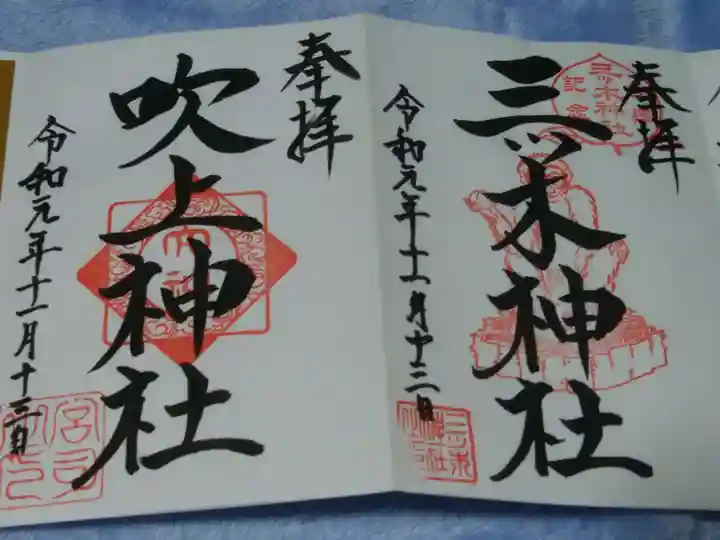 奉拝
三ツ木神社
令和元年十一月十二日
三ツ木神社
記念
奉拝
吹上神社
令和元年十一月十三日
宮司之印